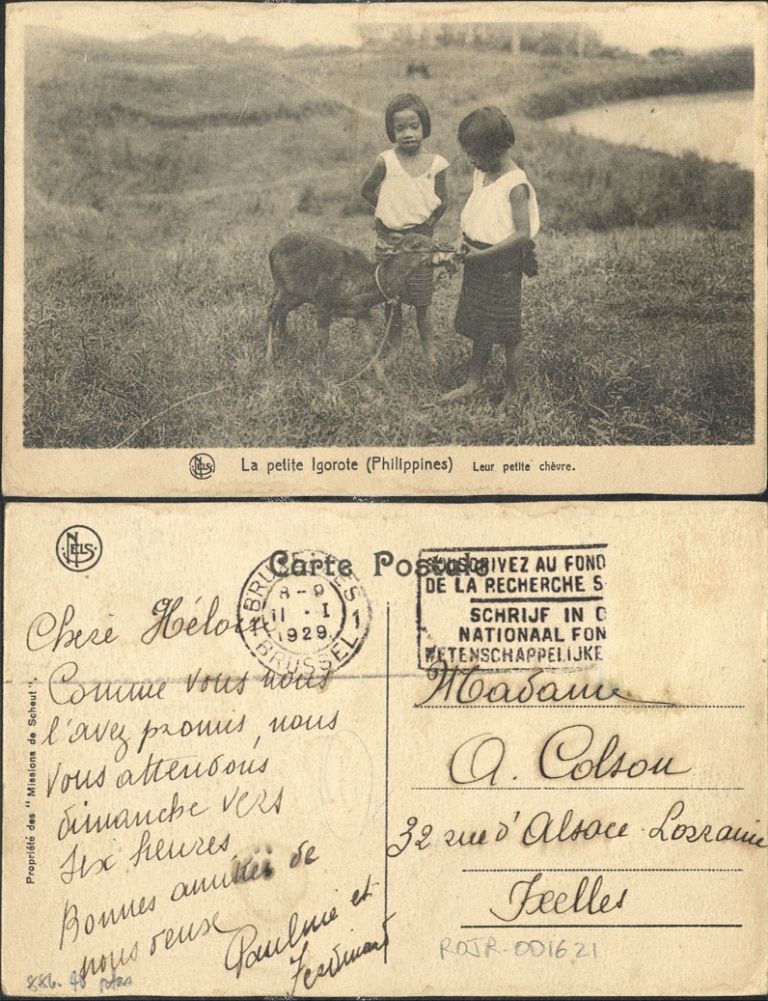 NELS
La petite Igorote (Philippines) Leur petite chèvre.
NELS
Carte Postale
BRUXELLES 1
8-9
11-I
1929
BRUSSEL
SOUSCRIVEZ AU FOND
DE LA RECHERCHE S
SCHRIJF IN
NATIONAAL FON
WETENSCHAPPELIJKE
Propriété des "Missions de Scheut".
Chère Héloïse
Comme vous nous
l'avez promis, nous
vous attendons
dimanche vers
six heures
Bonnes amitiés de
nous deux
Pauline et
Ferdinand
Madame
A. Colson
32 rue d'Alsace-Lorraine
Ixelles
ROJR-001621